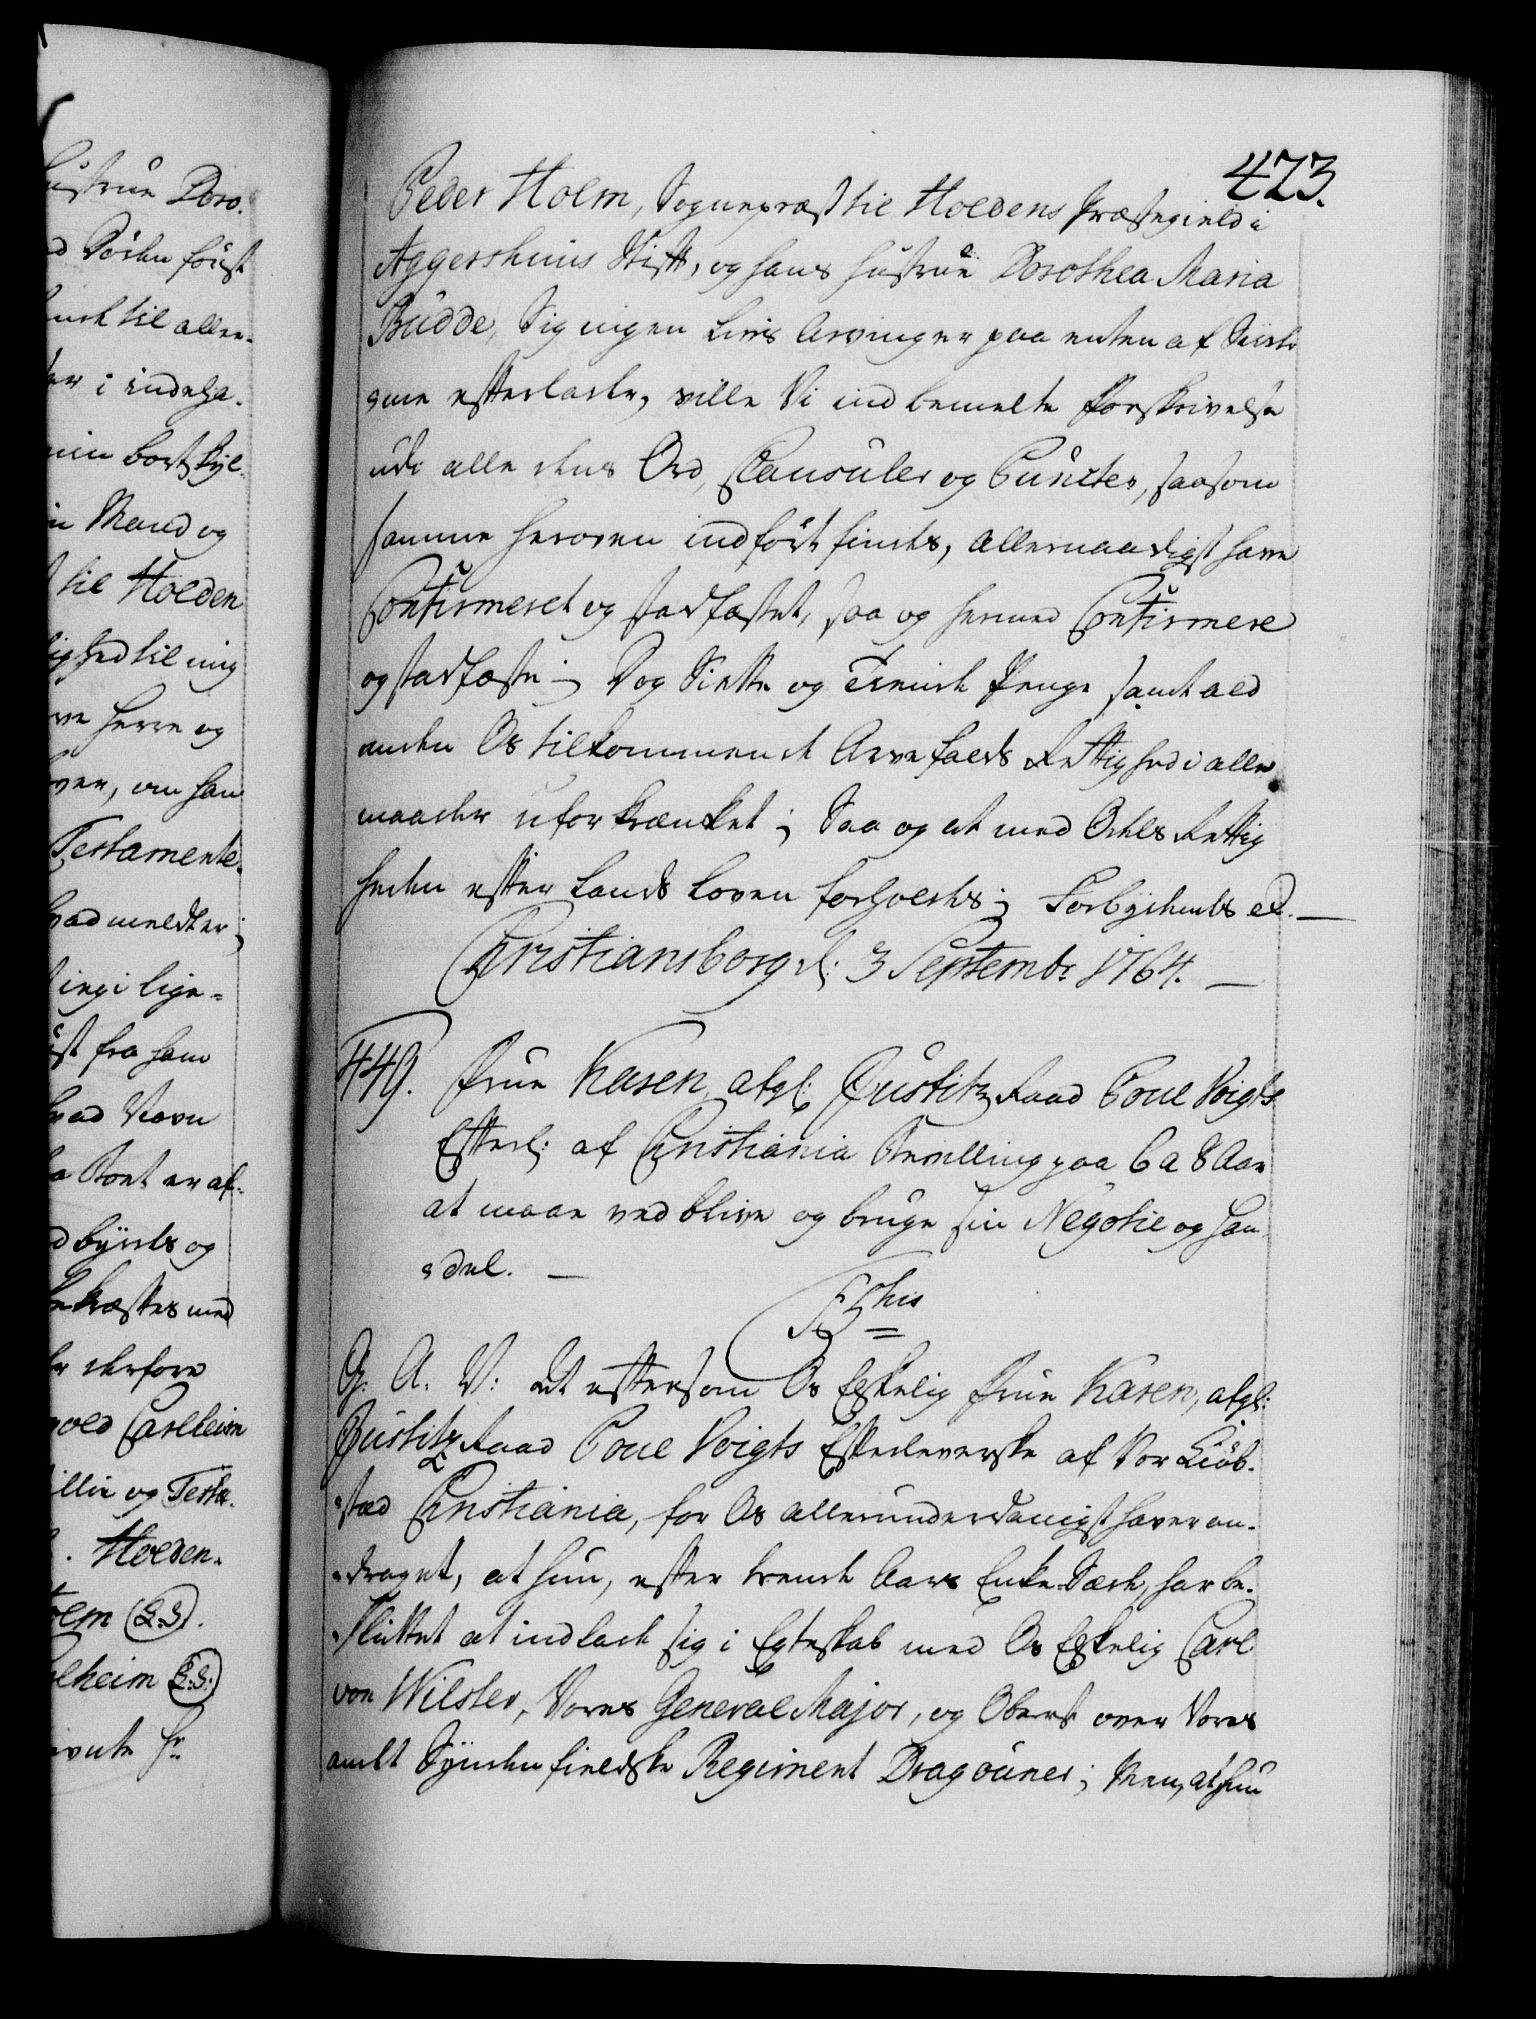 423.
Peder Holm, Sognepræst til Holdens Præstegield i
Aggershuus Stift, og hans Hustrue Dorothea Maria
Budde, Sig ingen Livs Arvinger paa enten af Siider-
-ne efterlader, ville Vi indbemelte Forskrivelse
udi alle dens Ord, Clausuler og Puncter, saasom
samme heroven indført findes, allernaadigst have
Confirmeret og stadfæstet, saa og hermed Confirmere
og stadfæste; Dog Siette og Tiende Penge samt ald
anden Os tilkommende Arvefalds Rettighed i alle
maader uforkrænket; Saa og at med Odels Rettig
heden efter Lands Loven forholdes; Forbydendes etc. —
Christiansborg d: 3 Septembr 1764. —
449. Frue Karen, afgl: Justitz Raad Poul Voigts
Efterl: af Christiania Bevilling paa 6 a 8 Aar
at maae vedblive og bruge sin Negotie og Han-
-del. —
F 5this
G. A. V: at eftersom Os Elskelig Frue Karen, afgl:
Justitz Raad Poul Voigts Efterleverske af Vor Kiøb-
-stad Christiania, for Os allerunderdanigst haver an-
-draget, at hun, efter trende Aars Enke-Sæde, har be-
-sluttet at indlade sig i Egteskab med Os Elskelig Carl
von Wilster, Vores General Major, og Oberst over Vores
andet Syndenfieldske Regiment Dragouner; Men, at hun
ustrue Doro-
til aller-
er i indeha-
bortskyl-
Mand og
til Holden
ighed til mig
ve Herre og
ver, om han
Testamente
hvad meldt er;
ing i lige-
ist fra ham
hvad Navn
Bort er af-
byrds og
bekræftes med
derfore
Carlheim
og Testa-
Holden.
olm (L.S).
lheim (L:S:)